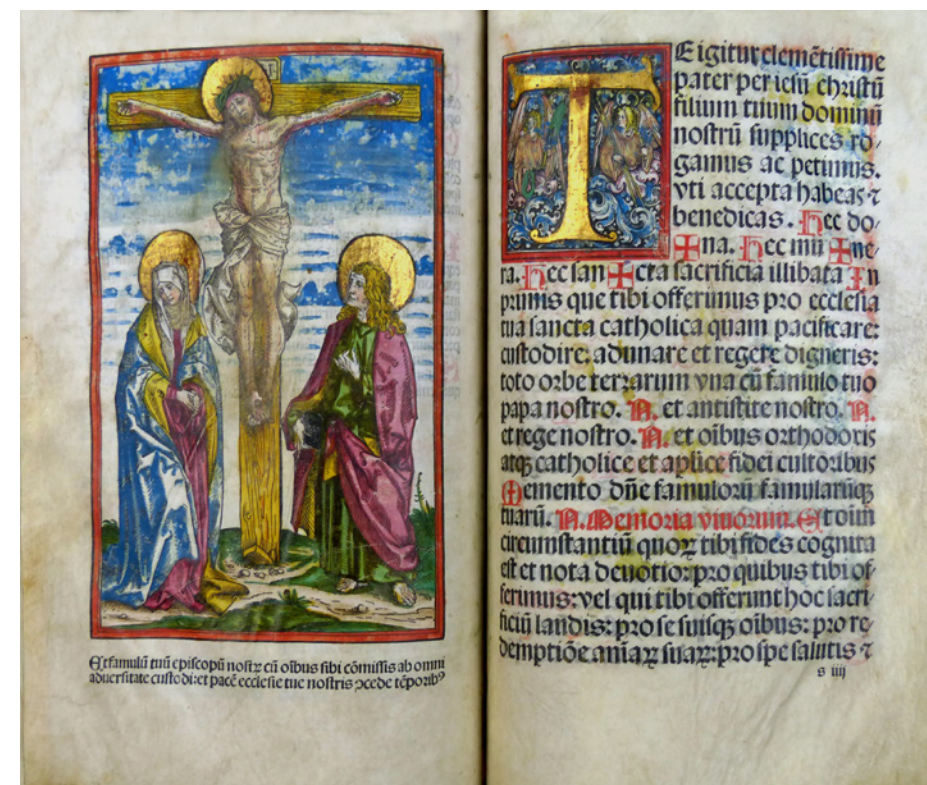 Et famulū tuū episcopū nostꝝ cū oībus sibi cōmissis ab omni
aduersitate custodi: et pacē ecclesie tue nostris ꝯcede tēporibꝰ
TEigitur clemētissime
pater per iesū christū
filium tuum dominū
nostrū supplices ro-
gamus ac petimus.
vti accepta habeas ⁊
benedicas. Hec do-
✠na. Hec mu✠ne-
ra. Hec san✠cta sacrificia illibata In
primis que tibi offerimus pro ecclesia
tua sancta catholica quam pacificare:
custodire: adunare et regere digneris:
toto orbe terrarum vna cū famulo tuo
papa nostro. N. et antistite nostro. N.
et rege nostro. N. et oībus orthodoxis
atqꝫ catholice et aplice fidei cultoribus
Memento dn̄e famulorū famularūqꝫ
tuarū. N. Memoria viuorum. Et oīm
circumstantiū quoꝝ tibi fides cognita
est et nota deuotio: pro quibus tibi of-
ferimus: vel qui tibi offerunt hoc sacri-
ficiū laudis: pro se suisqꝫ oībus: pro re-
demptiōe aniaꝝ suaꝝ: pro spe salutis ⁊
s iiij